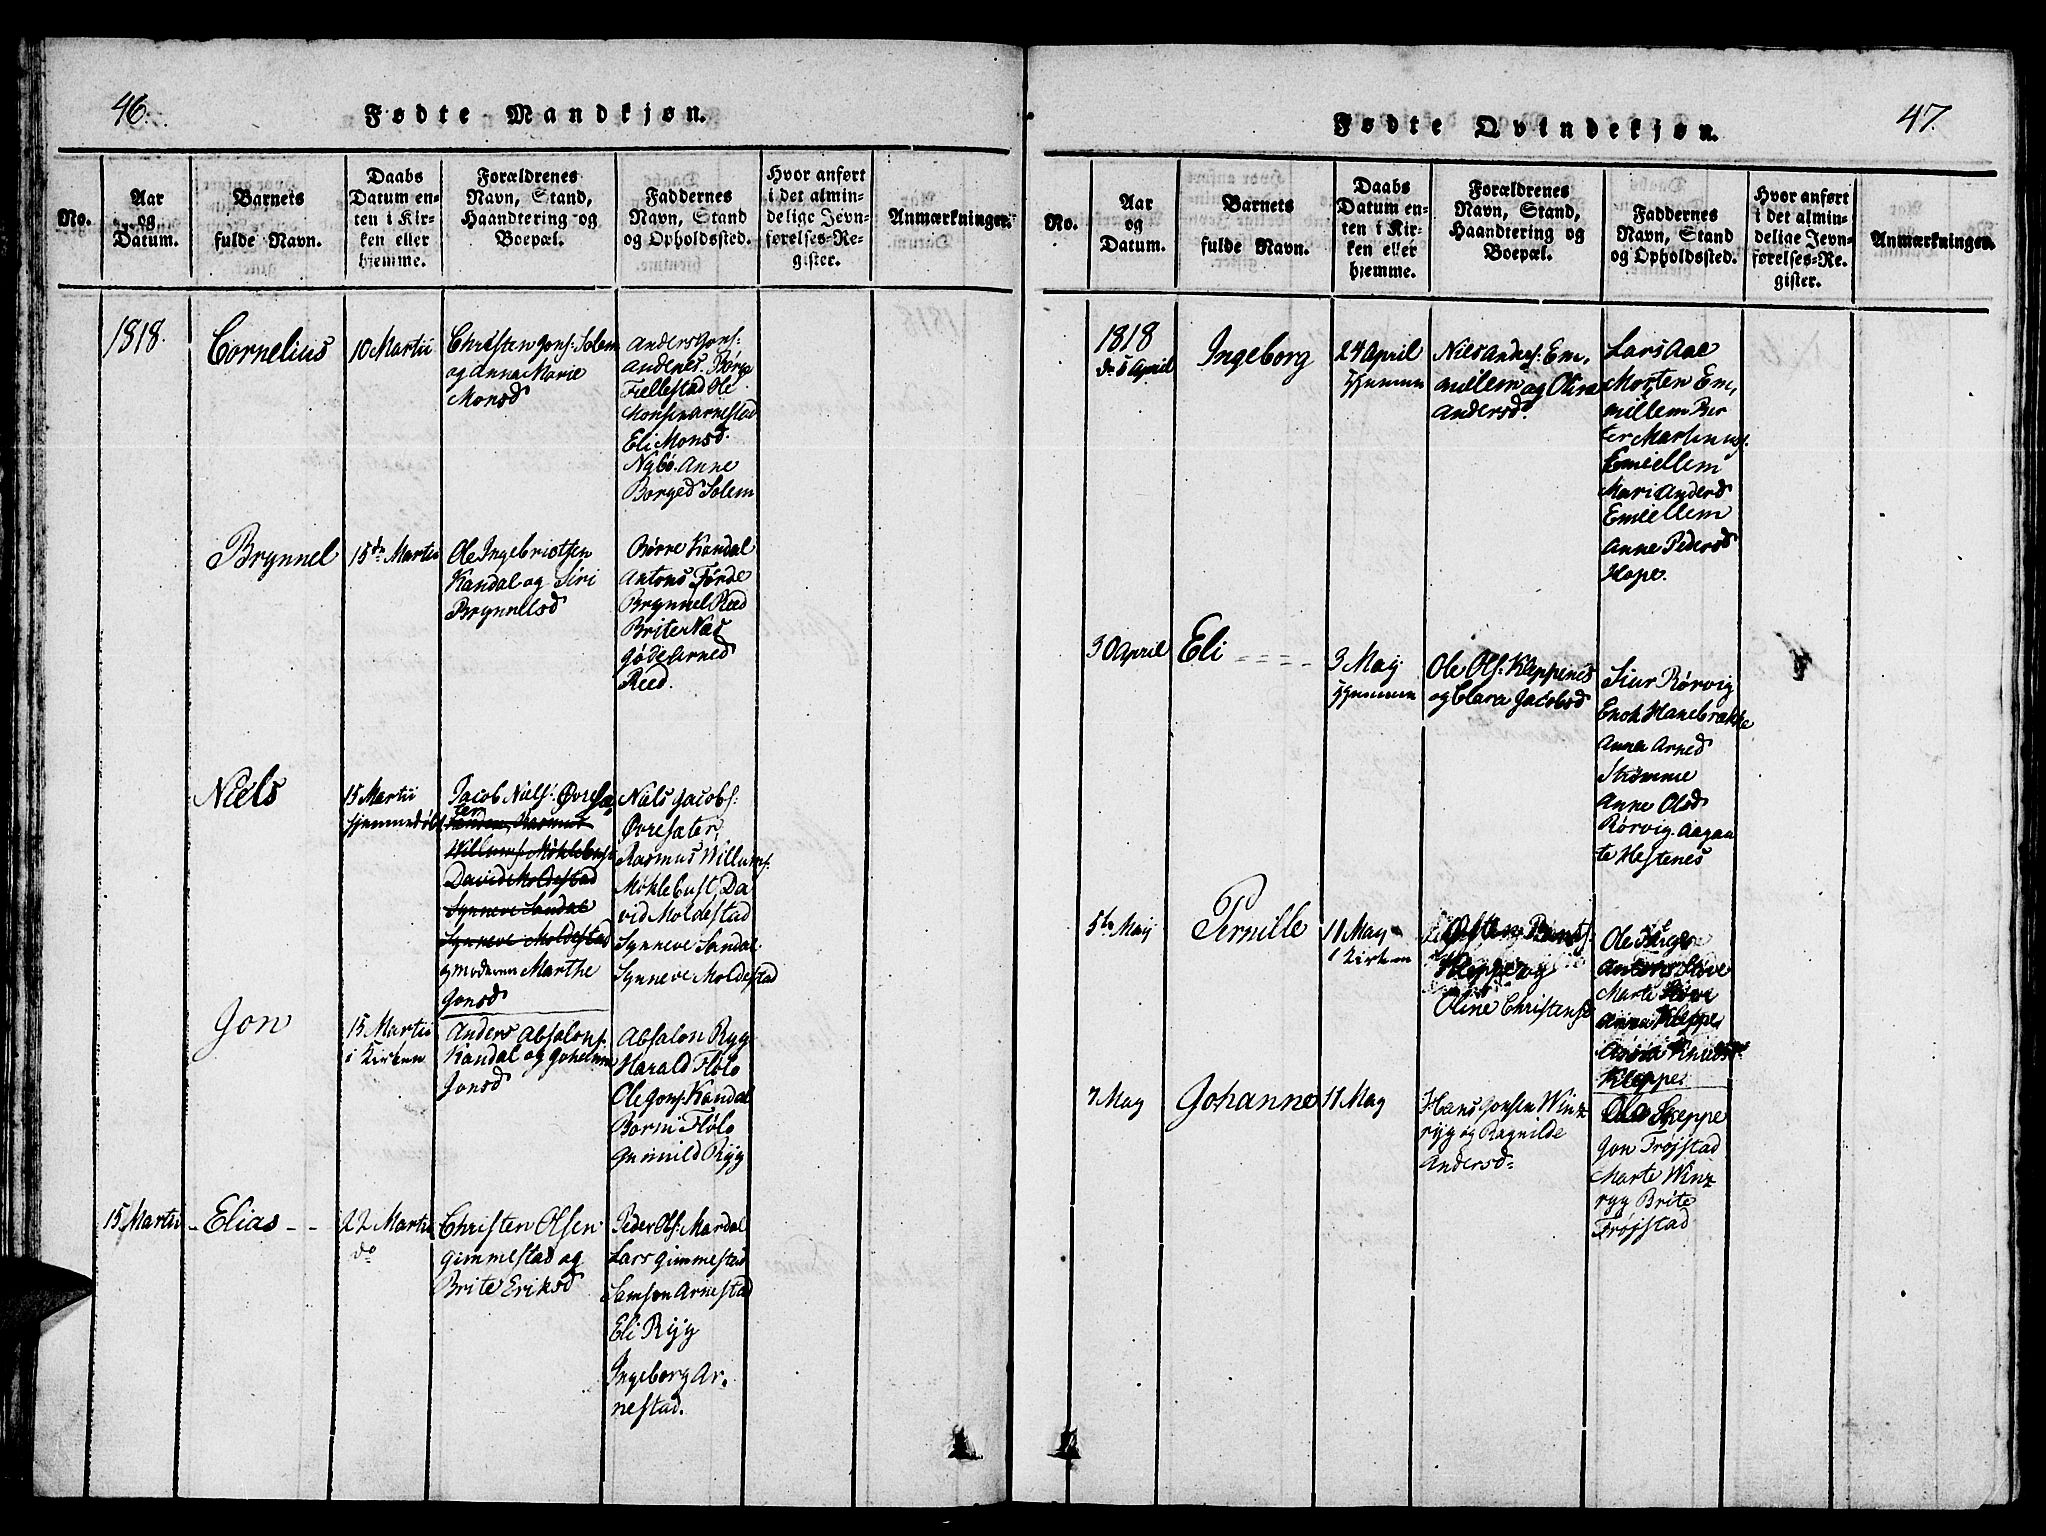 46.
Fødte Mandkjøn.
No.
Aar
og
Datum.
Barnets
fulde Navn.
Daabs
Datum en-
ten i Kir-
ken eller
hjemme.
Forældrenes
Navn, Stand,
Haandtering og
Boepæl.
Faddernes
Navn, Stand
og Opholdssted.
Hvor anført
i det almin-
delige Jevn-
førelses-Re-
gister.
Anmærkninger.
1818.
Cornelius
10 Martii
Christen Jons: Solem
og Anna Marie
Monsd
Anders Jons:
Andenes. Børge
Fellestad Ole
Monsen Arnestad
Eli Monsd.
Nybö. Anne
Borged Solem
Brynnel
15de Martii
Ole Ingebrictsen
Kandal og Siri
Brynnelsd
Børre Kandal
Antons Förde
Brynnel Reed
Brite Næs
Gödsk Arned
Reed.
Niels
15 Martii
hjemmedöbt
Jacob Niels: Øvresæ
ter
Rasmus
Willums. Möklebust
David Moldestad
Synneve Sandal
Synneve Moldestad
og moderen Marthe
Jonsd
Niels Jacobs:
Øvresæter,
Rasmus Willums.
Möklebust, Da
vid Moldestad
Synneve Sandal
Synneve Moldestad
Jon
15 Martii
i Kirken
Anders Absalons.
Kandal og Johanne
Jonsd
Absalon Ryg
Harald Flölo
Ole Jons. Kandal
Borni Flölo
Gunnild Ryg
15 Martii
Elias
22 Martii
do
Christen Olsen
Gimmestad og
Brite Eriksd
Peder Ols. Mardal
Lars Gimmestad
Samson Arnestad
Eli Ryg
Ingeborg Ar-
nestad.
47.
Fødte Qvindekjøn.
No.
Aar
og
Datum.
Barnets
fulde Navn.
Daabs
Datum en-
ten i Kir-
ken eller
hjemme.
Forældrenes
Navn, Stand,
Haandtering og
Boepæl.
Faddernes
Navn, Stand
og Opholdssted.
Hvor anført
i det almin-
delige Jevn-
førelses-Re-
gister.
Anmærkninger.
1818
dn 5 April
Ingeborg
24 April
hjemme
Niels Anders: Em,
mellem og Oline
Andersd.
Lars Aae
Morten Em,
millem Per
ter Martinus.
Emellem
Mari Andersd
Emellem
Anne Pedersd
Hope.
30 April
Eli
3 May
hjemme
Ole Ols: Kleppenes
og Clara Jacobsd
Siur Rørvig
Enok Hanebrække
Anna Arned
Strømme
Anne Olsd
Rørvig. Aagaa
te Hestenes
5te May
Pernille
11 May
i Kirken
Kleppe og
Oline Christensd
Ole
Antons Støve
Marte Støve
Anna Kleppe
Anna Knuds
Kleppe
7 May
Johanne
11 May
Hans Jonsen Winz
ryg og Ragnilde
Andersd
Ola Skeppe
Jon Tröjstad
Marte Winz
ryg Brite
Tröjstad